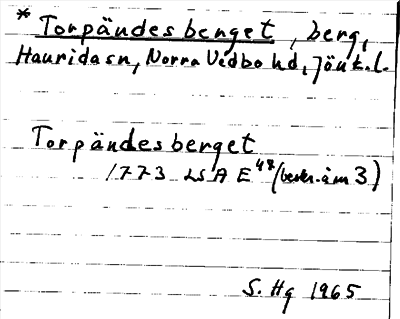 * Torpändesberget, berg,
Hauridasn, Norra Vedbo hd, Jönk.l.
Torpändesberget
1773 LSA E48 (beskr. åm 3)
S. Hg 1965